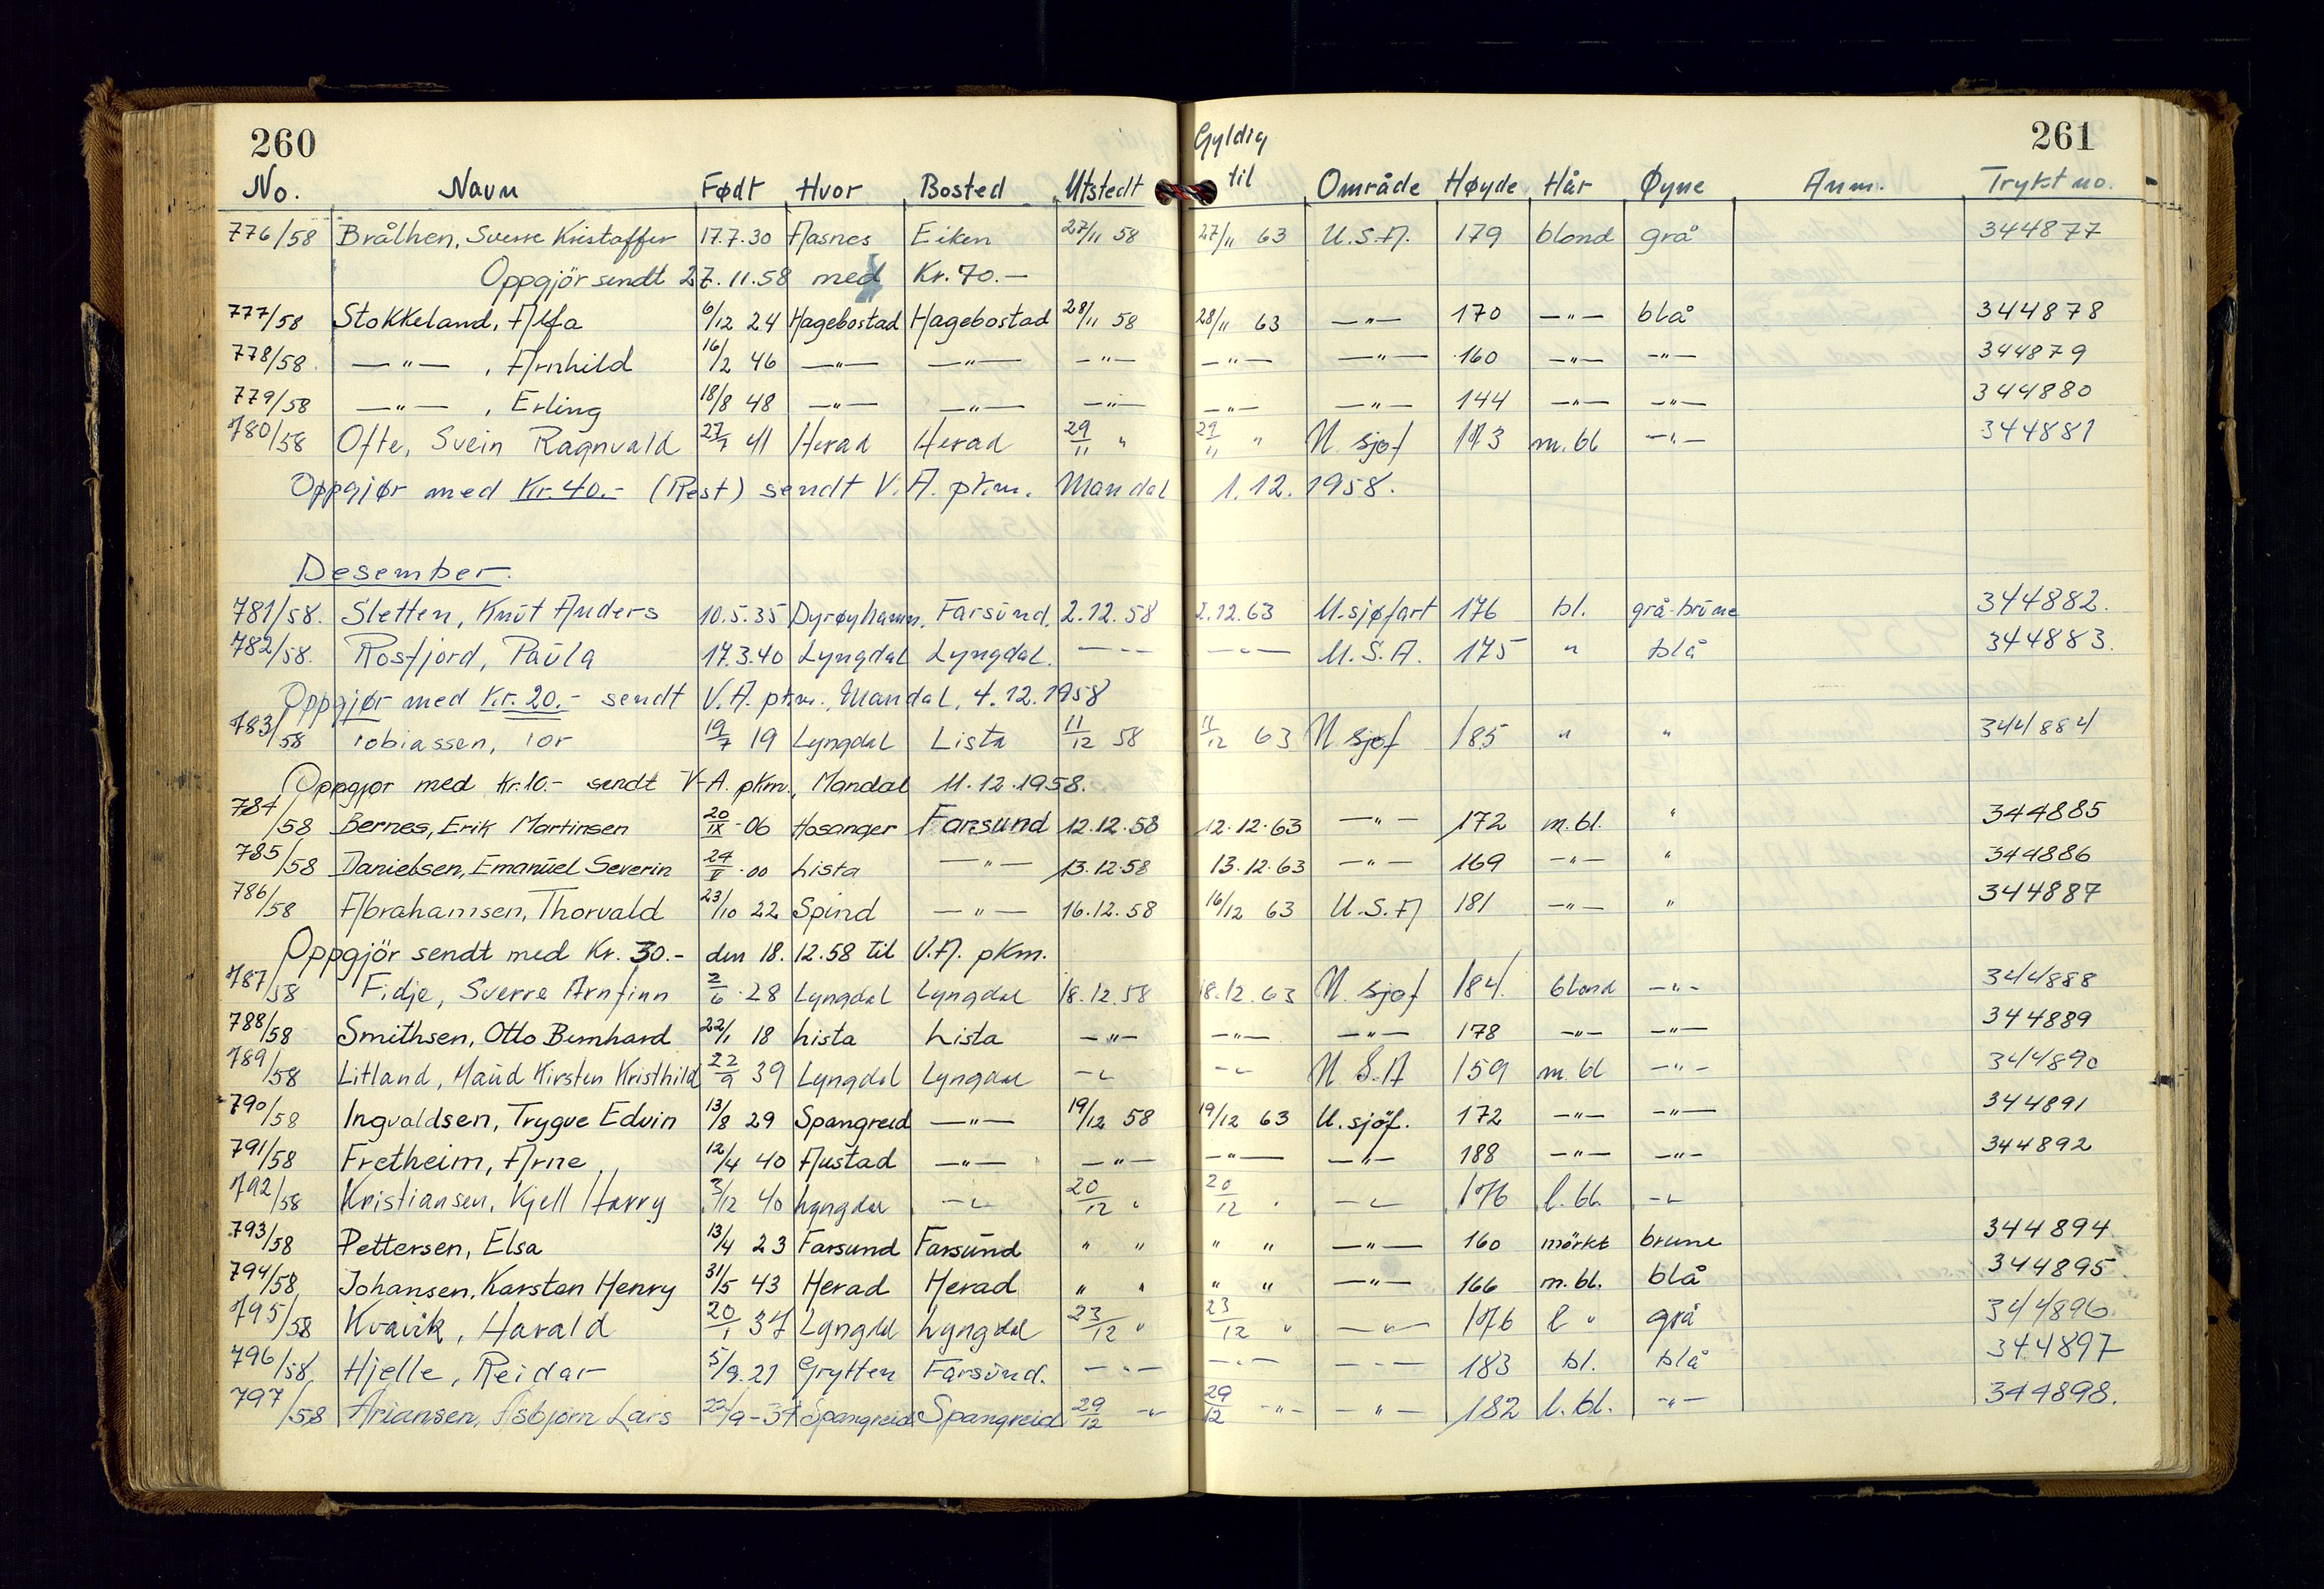 260
261
No. Navn Født Hvor Bosted Utstedt Gyldig til Område Høyde Hår Øyne Anm. Trykt no.
776/58 Bråthen, Sverre Kristoffer 17.7.30 Aasnes Eiken 27/11 58 27/11 63 U.S.A. 179 blond grå 344877
Oppgjör sendt 27.11.58 med Kr. 70.—
777/58 Stokkeland, 6/12 24 Hagebostad Hagebostad 28/11 58 28/11 63 —"— 170 —"— blå 344878
778/58 —"— , Arnhild 16/2 46 —"— —"— —"— —"— —"— 160 —"— —"— 344879
779/58 —"— , Erling 18/8 48 —"— —"— —"— —"— —"— 144 —"— —"— 344880
780/58 Ofte, Svein Ragnvald 27/7 41 Herad Herad 29/11 " 29/11 " U sjøf 173 m.bl —"— 344881
Oppgjør med Kr. 40.- (Rest) sendt V.A. pkm. Mandal 1.12.1958.
Desember.
781/58. Sletten, Knut Anders 10.5.35 Dyrøyhamn. Farsund. 2.12.58 2.12.63 U.sjøfart 176 bl. grå-brune 344882.
782/58. Rosfjord, Paula 17.3.40 Lyngdal Lyngdal. —"— —"— U.S.A. 175 " blå 344883.
Oppgjør med Kr. 20.- sendt V.A. pkm. Mandal, 4.12.1958
783/58 Tobiassen, Tor 19/7 19 Lyngdal Lista 11/12 58 11/12 63 U sjøf 185 " " 344884
Oppgjør med Kr.10.- sendt V-A. pkm., Mandal 11.12.1958.
784/58 Bernes, Erik Martinsen 20/IX-06 Hosanger Farsund 12.12.58 12.12.63 —"— 172 m.bl. " 344885
785/58 Danielsen, Emanuel Severin 24/V-00 Lista —"— 13.12.58 13.12.63 —"— 169 —"— " 344886
786/58 Abrahamsen, Thorvald 23/10 22 Spind —"— 16.12.58 16/12 63 U.S.A 181 —"— " 344887
Oppgjör sendt med Kr. 30.- den 18.12.58 til V.A. pkm.
787/58 Fidje, Sverre Arnfinn 2/6-28 Lyngdal Lyngdal 18.12.58 18.12.63 U. sjøf 184. blond —"— 344888
788/58 Smithsen, Otto Bernhard 22/1 18 Lista Lista —"— —"— —"— 178 —"— —"— 344889
789/58 Litland, Maud Kirsten Kristhild 22/9 39 Lyngdal Lyngdal —"— —"— U S.A 159 m.bl —"— 344890
790/58 Ingvaldsen, Trygve Edvin 13/8 29 Spangreid —"— 19/12 58 19/12 63 U.sjöf. 172 —"— —"— 344891
791/58 Fretheim, Arne 12/4 40 Austad —"— —"— —"— —"— 188 —"— —"— 344892
792/58 Kristiansen, Kjell Harry 3/12 40 Lyngdal —"— 20/12 " 20/12 " —"— 176 l.bl. —"—
793/58 Pettersen, Elsa 13/4 23 Farsund Farsund " " " " —"— 160 mörkt brune 344894
794/58 Johansen, Karsten Henry 31/5 43 Herad Herad " " " " —"— 166 m.bl. blå 344895
795/58 Kvavik, Harald 20/1 37 Lyngdal Lyngdal 23/12 " 23/12 " —"— 176 l " grå 344896
796/58 Hjelle, Reidar 5/9.21 Grytten Farsund. —"— —"— —"— 183 bl. blå 344897
797/58 Ariansen, Asbjørn Lars 22/9-37 Spangreid Spangreid 29/12 —"— 29/12 —"— —"— 182 l.bl. —"— 344898.